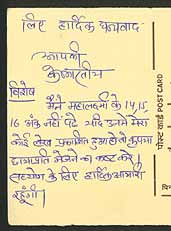 लिए हार्दिक धन्यवाद
आपकी
विशेष
मैंने महालक्ष्मी के 14, 15,
16 अंक नहीं पढे यदि उनमें मेरा
कोई लेख प्रकाशित हुआ हो तो कृपया
छायाप्रति भेजने का कष्ट करें।
सहयोग के लिए हार्दिक आभारी
रहूंगी।
पोस्ट कार्ड POST CARD